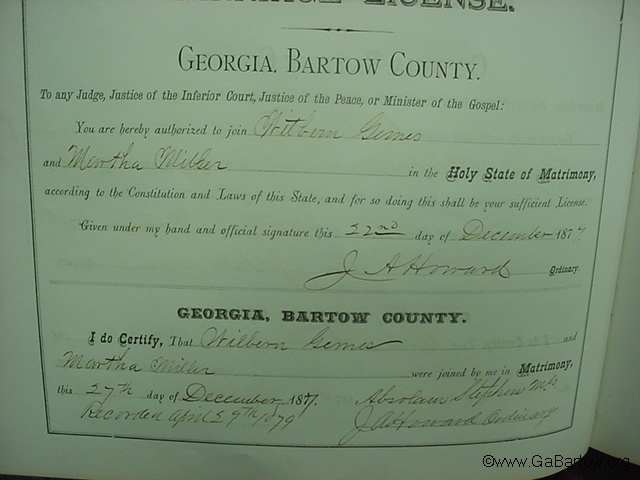 MARRIAGE LICENSE.
GEORGIA, BARTOW COUNTY.
To any Judge, Justice of the Inferior Court, Justice of the Peace, or Minister of the Gospel:
You are hereby authorized to join Wilbern Gemes
and Martha Miller in the Holy State of Matrimony,
according to the Constitution and Laws of this State, and for so doing this shall be your sufficient License.
Given under my hand and official signature this 22nd day of December 1877.
J A Howard Ordinary.
GEORGIA, BARTOW COUNTY.
I do Certify, That Wilbern Gemes and
Martha Miller were joined by me in Matrimony,
this 27th day of December 1877. Abrolam Stephens
Recorded April 29th 1879 J A Howard Ordinary
©www.GaBartow.org